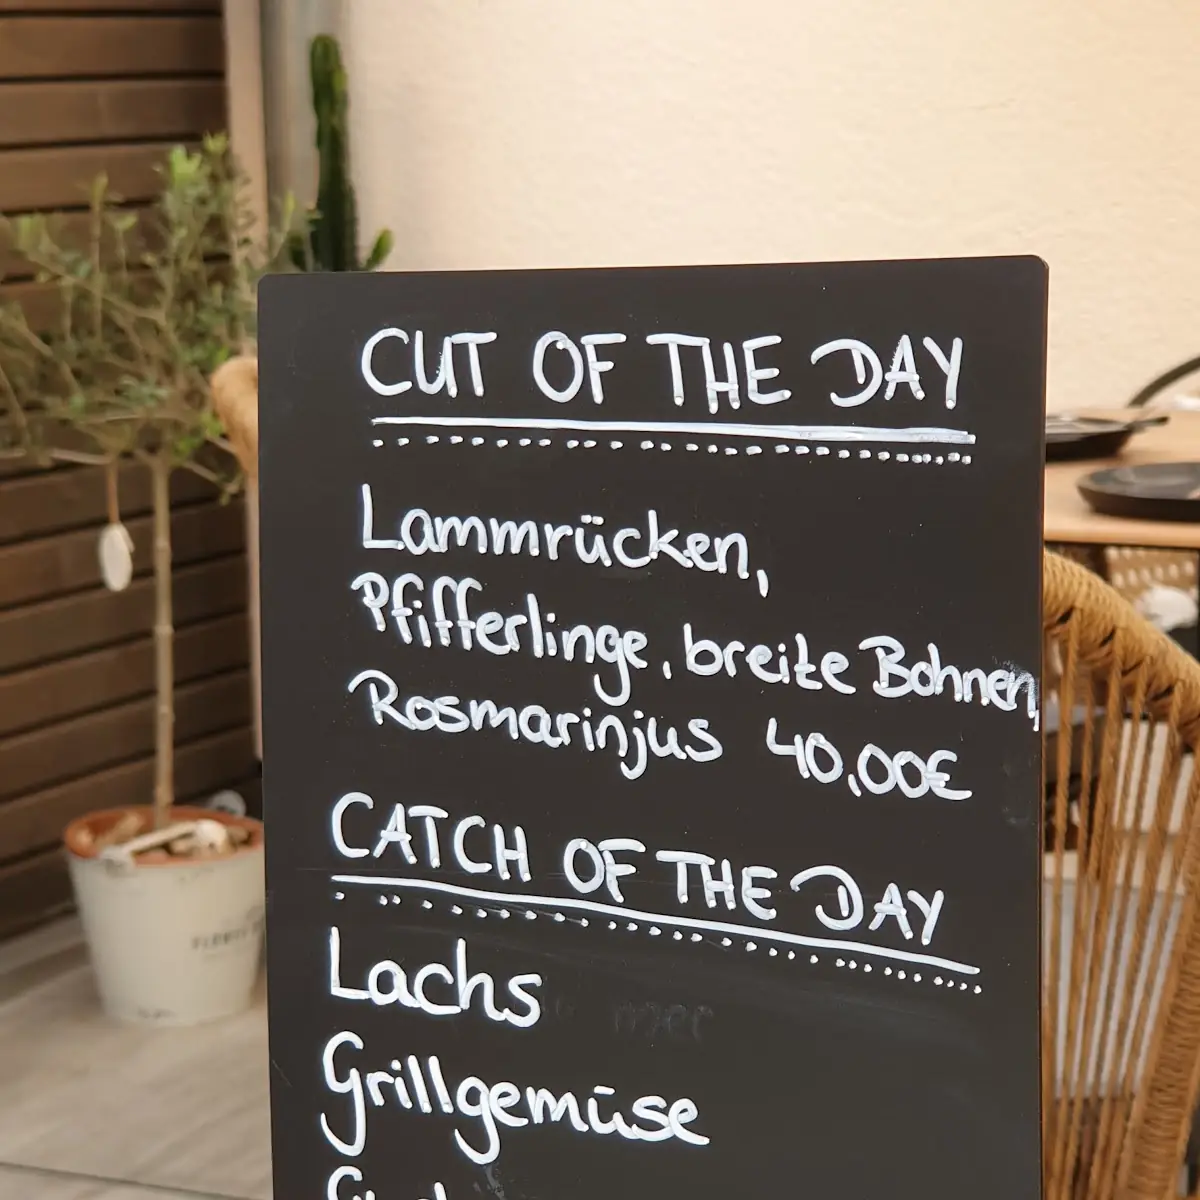 CUT OF THE DAY
Lammrücken,
Pfifferlinge, breite Bohnen,
Rosmarinjus 40,00€
CATCH OF THE DAY
Lachs
Grillgemüse